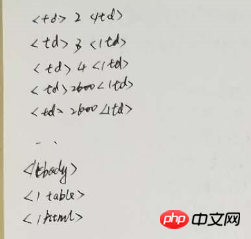 <td> 2 </td>
<td> 3 </td>
<td> 4 </td>
<td> 2600 </td>
<td> 2600 </td>
...
</tbody>
</table>
</html>
php 中文网